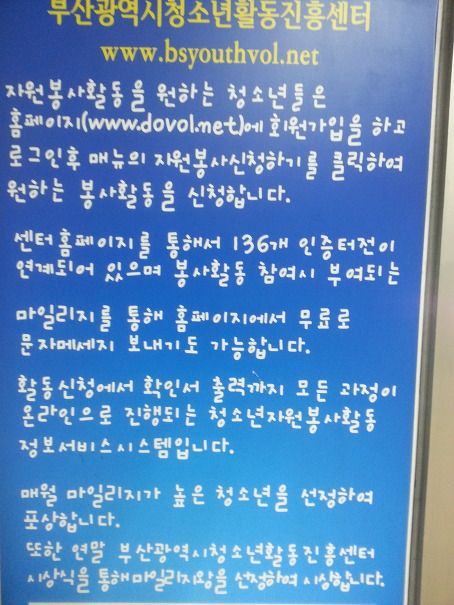 부산광역시청소년활동진흥센터
www.bsyouthvol.net
자원봉사활동을 원하는 청소년들은
홈페이지(www.dovol.net)에 회원가입을 하고
로그인후 매뉴의 자원봉사신청하기를 클릭하여
원하는 봉사활동을 신청합니다.
센터홈페이지를 통해서 136개 인증터전이
연계되어 있으며 봉사활동 참여시 부여되는
마일리지를 통해 홈페이지에서 무료로
문자메세지 보내기도 가능합니다.
활동신청에서 확인서 출력까지 모든 과정이
온라인으로 진행되는 청소년자원봉사활동
정보서비스시스템입니다.
매월 마일리지가 높은 청소년을 선정하여
포상합니다.
또한 연말 부산광역시청소년활동진흥센터
시상식을 통해마일리지왕을 선정하여 시상합니다.